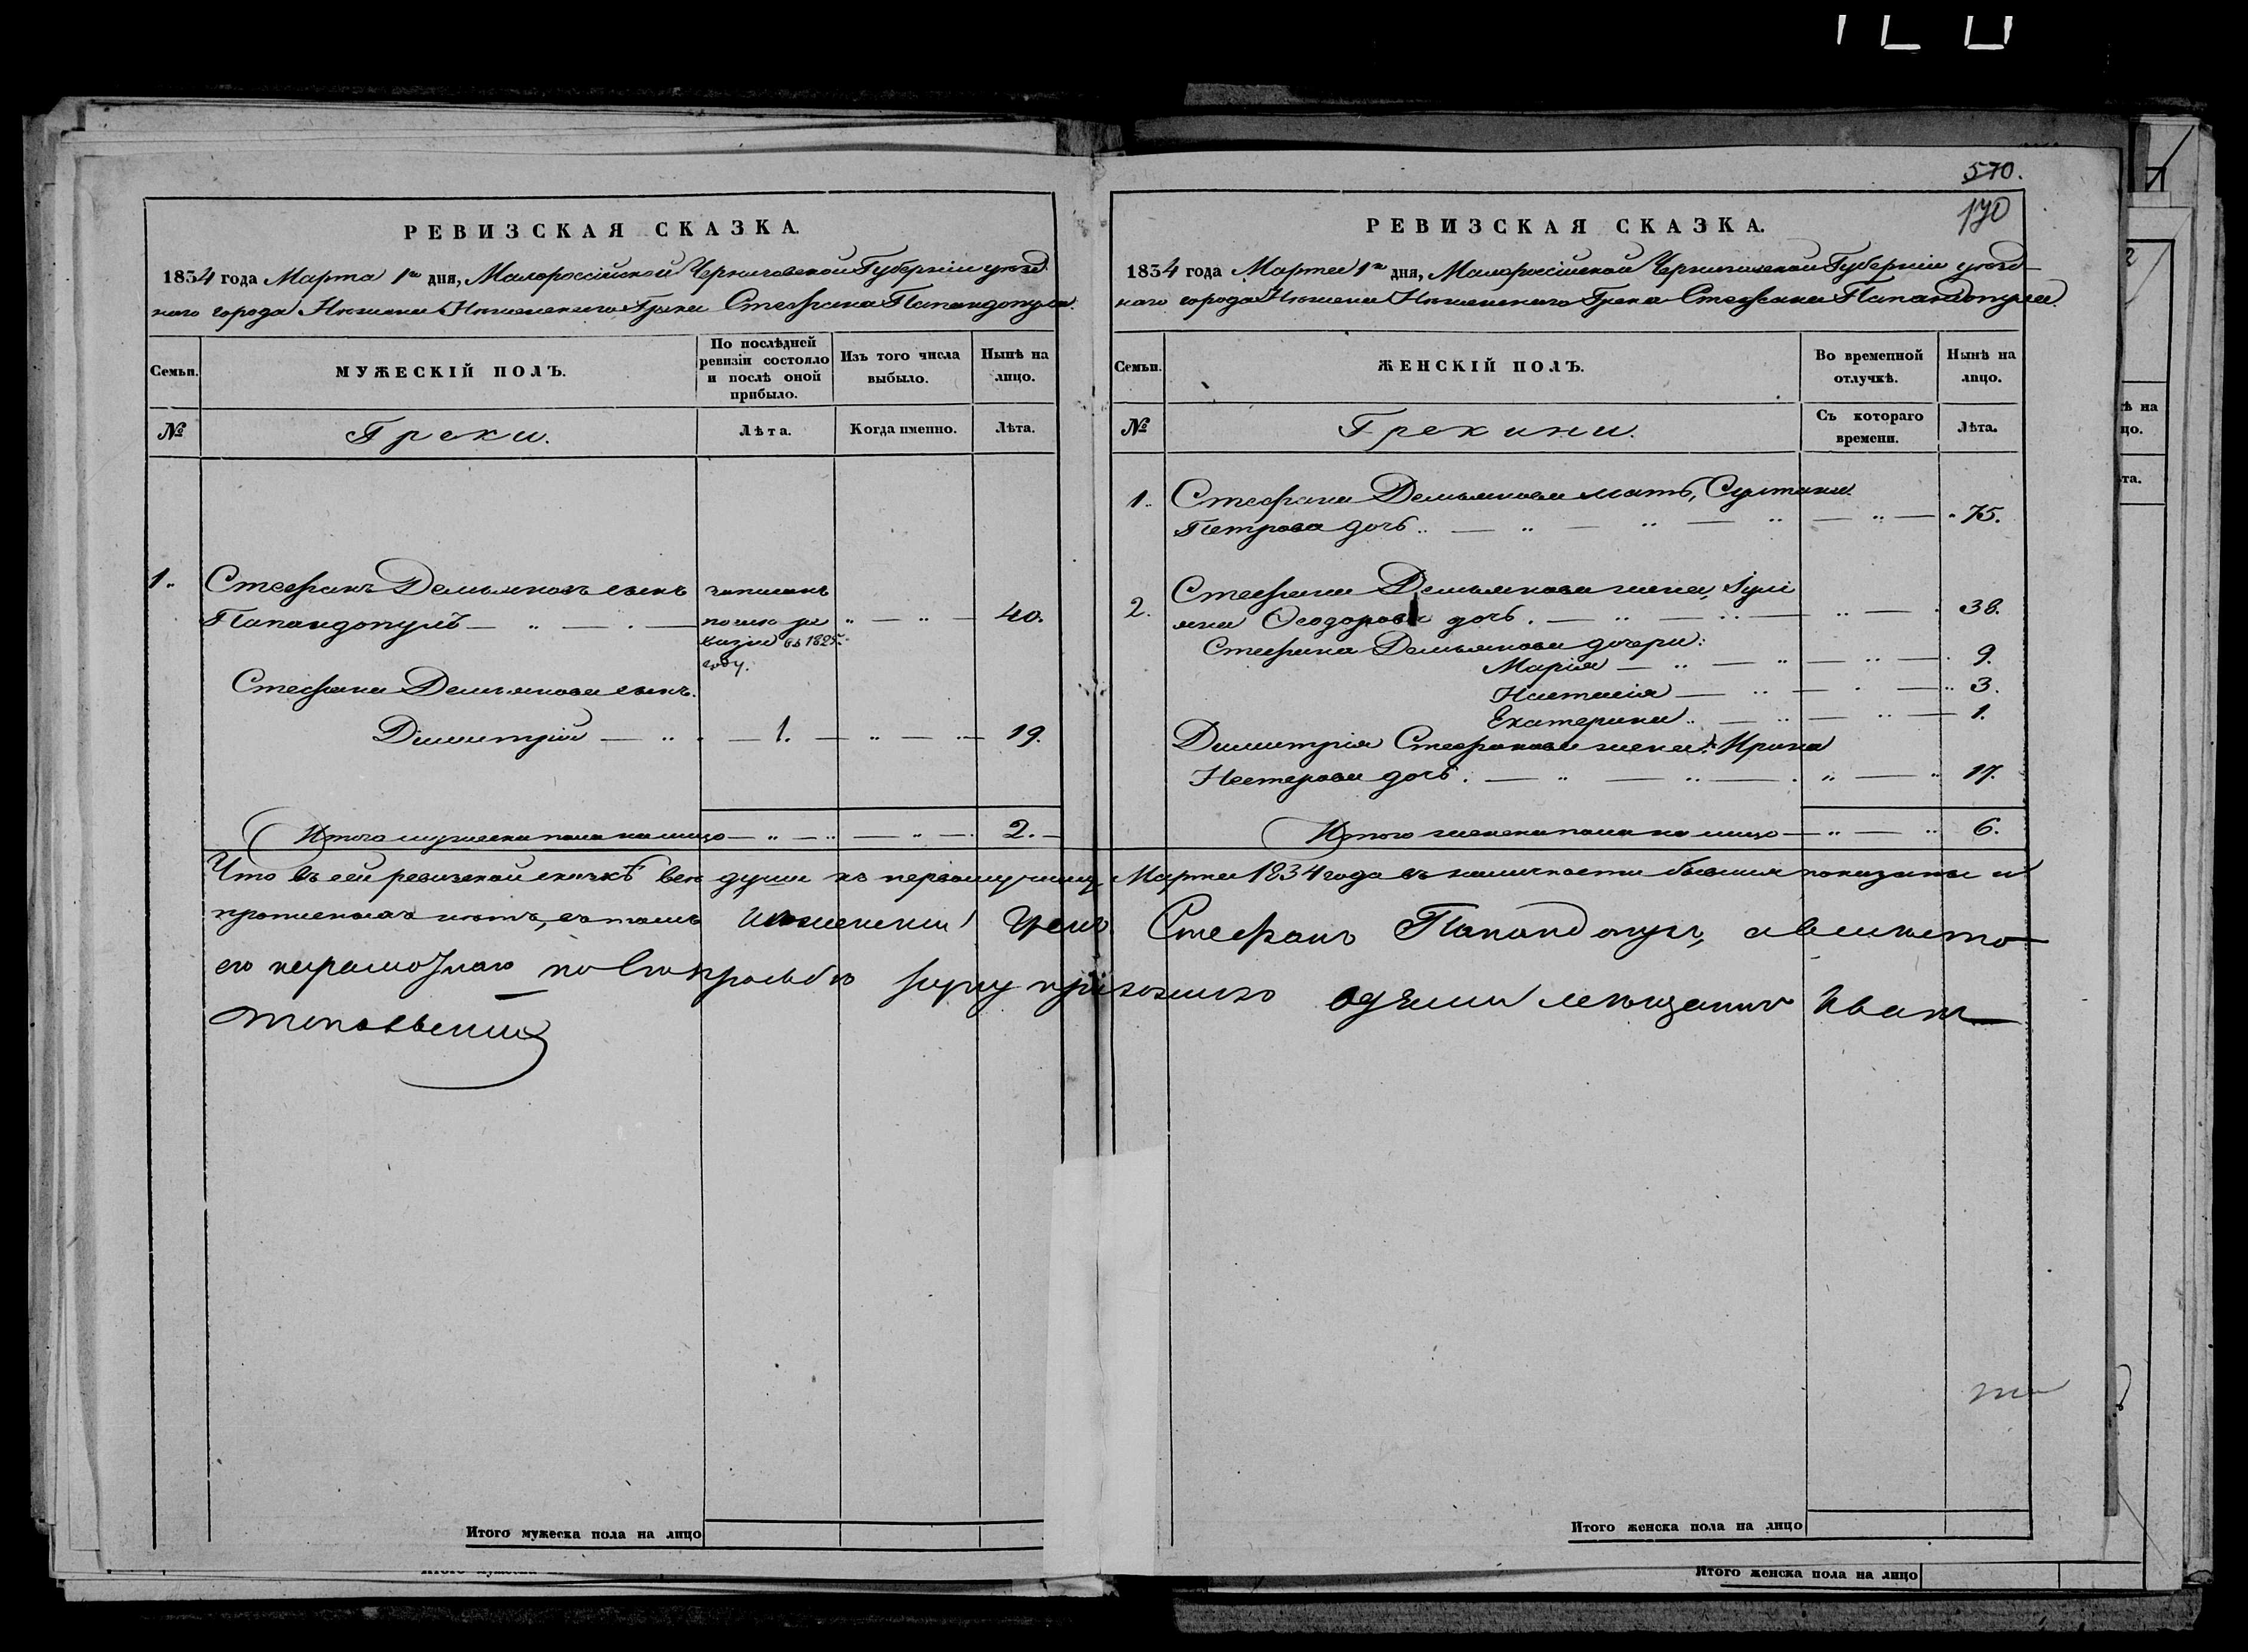 570.
170
РЕВИЗСКАЯ СКАЗКА.
1834 года Марта 1го дня, Малороссійской Черниговской Губерніи уезд
наго города Нежина Нежинскаго Грека Стефана Папандопула.
Семьи.
МУЖЕСКІЙ ПОЛЪ.
По послѣдней
ревизіи состояло
и послѣ оной
прибыло.
Изъ того числа
выбыло.
Нынѣ на
лицо.
№
Греки.
Лѣта.
Когда именно.
Лѣта.
1. Стефанъ Демьяновъ сынъ записанъ
Папандопулъ после ре 40.
визіи въ 1825.
году.
Стефана Демьянова сынъ.
Димитрій 1. 19.
Итого мужеска пола на лицо 2.
РЕВИЗСКАЯ СКАЗКА.
1834 года Марта 1го дня, Малороссійской Черниговской Губерніи уезд
наго города Нежина Нежинскаго Грека Стефана Папандопула.
Семьи.
ЖЕНСКІЙ ПОЛЪ.
Во временной
отлучкѣ.
Нынѣ на
лицо.
№
Грекини.
Съ котораго
времени.
Лѣта.
1. Стефана Демьянова мать, Султана
Петрова дочь 75.
2. Стефана Демьянова жена, Іулі
яна Феодорова дочь. 38.
Стефана Демьянова дочери:
Марія 9.
Настасія 3.
Екатерина 1.
Димитрія Стефанова жена: Ирина
Нестерова дочь. 17.
Итого женска пола на лицо 6.
Что въ сей ревизской сказкѣ все души къ первому числу Марта 1834 года въ наличности бывшія показаны и
прописныхъ нетъ, въ томъ Неженскій Грекъ Стефанъ Папандопулъ, а вместо
его неграмотнаго по Его прозьбе руку приложилъ мещанинъ Иванъ
Итого мужеска пола на лицо
Итого женска пола на лицо
Итого женска пола на лицо